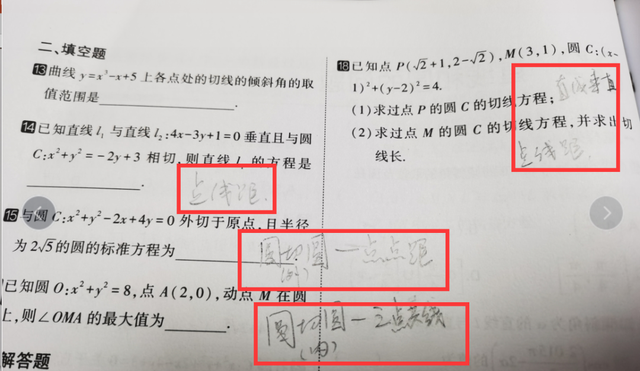 二、填空题
13曲线y=x³-x+5上各点处的切线的倾斜角的取
值范围是________.
14已知直线l₁与直线l₂:4x-3y+1=0垂直且与圆
C:x²+y²=-2y+3相切,则直线l₁的方程是
________.
点线距.
15与圆C:x²+y²-2x+4y=0外切于原点,且半径
为2√5的圆的标准方程为________
圆切圆一点点距
(外)
已知圆O:x²+y²=8,点A(2,0),动点M在圆
上,则∠OMA的最大值为________.
圆切圆一三点共线
(内)
解答题
18已知点P(√2+1,2-√2),M(3,1),圆C:(x-
1)²+(y-2)²=4.
(1)求过点P的圆C的切线方程;
直线垂直
(2)求过点M的圆C的切线方程,并求出切
线长.
点线距.